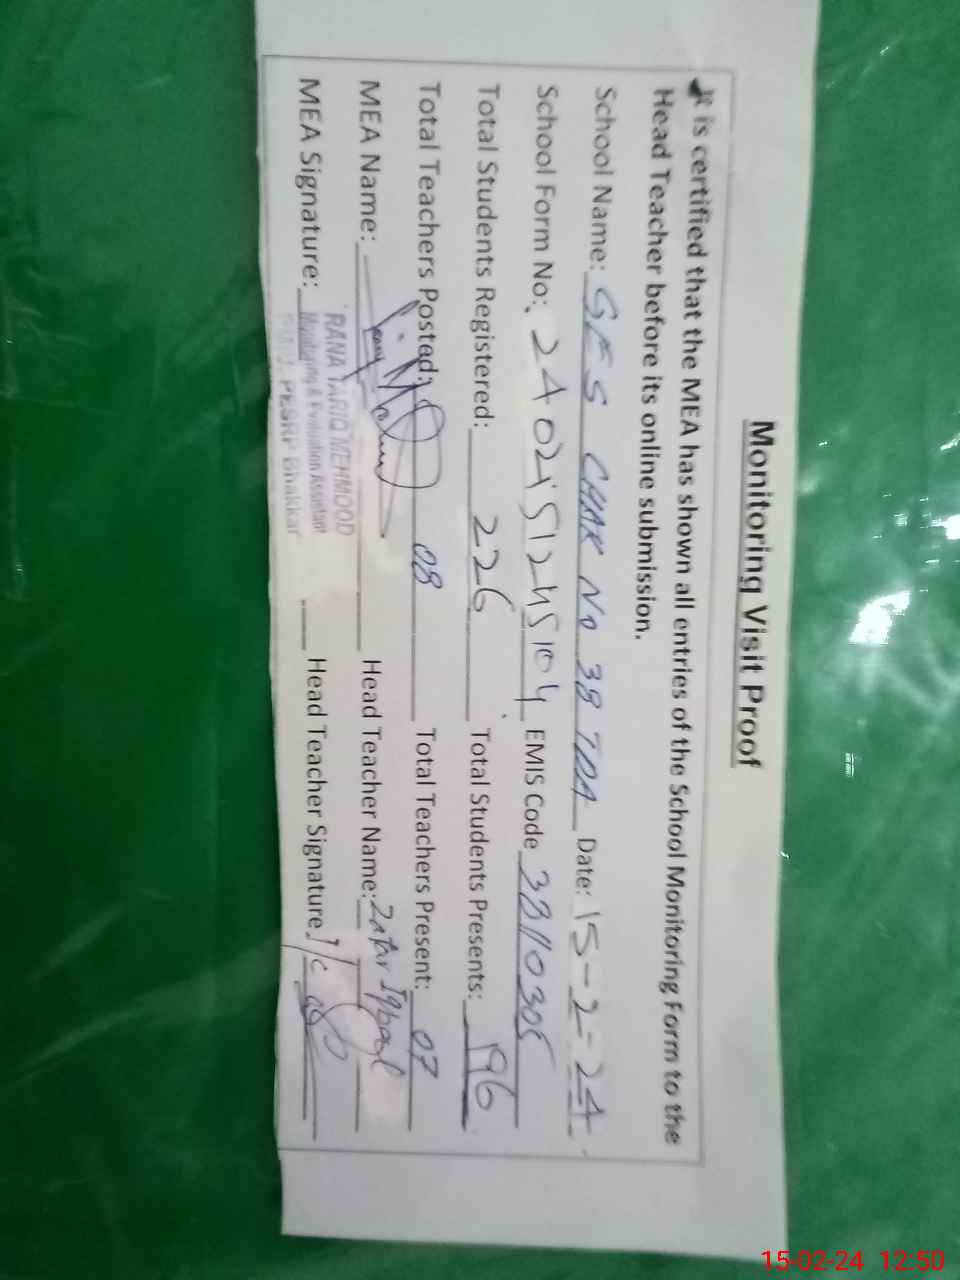 Monitoring Visit Proof
It is certified that the MEA has shown all entries of the School Monitoring Form to the
Head Teacher before its online submission.
School Name: GES CHAK No 38 TDA Date: 15-2-24
School Form No: EMIS Code 38110305
Total Students Registered: 226 Total Students Presents: 196
Total Teachers Posted: 08 Total Teachers Present: 07
MEA Name: Head Teacher Name: Zafar Iqbal
MEA Signature: Head Teacher Signature
RANA TARIQ MEHMOOD
Monitoring & Evaluation Assistant
PESRP Bhakkar
15-02-24 12:50